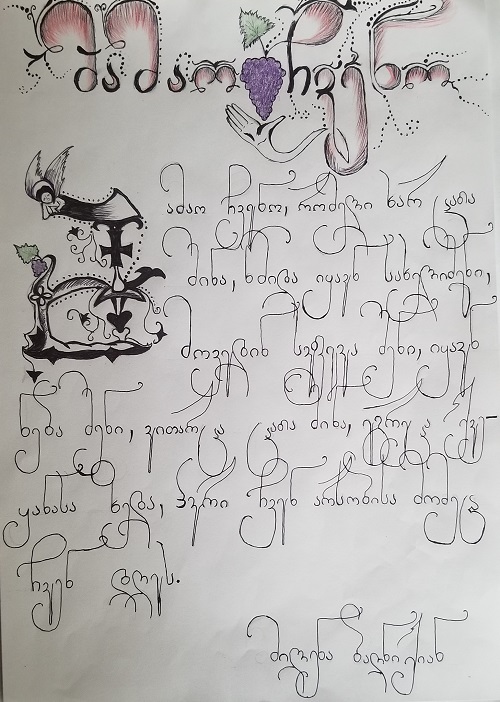 მამაო ჩვენო
მამაო ჩვენო, რომელი ხარ ცათა
შინა, წმიდა იყავნ სახელი შენი,
მოვედინ სუფევა შენი, იყავნ
ნება შენი, ვითარცა ცათა შინა, ეგრეცა ქვე-
ყანასა ზედა, პური ჩვენი არსობისა მომეც
ჩვენ დღეს.